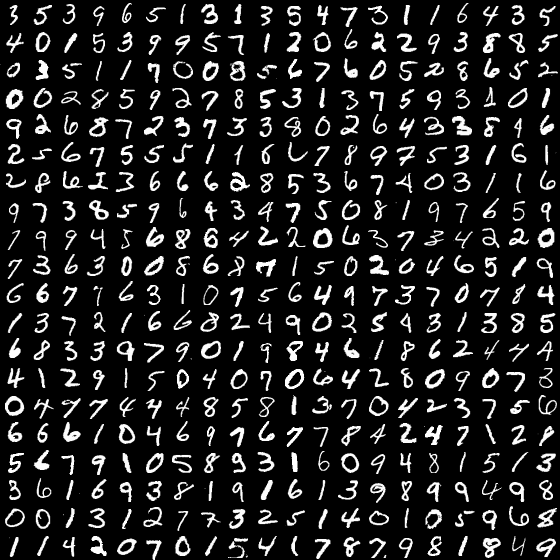 3 5 3 9 6 5 1 3 1 3 5 4 7 3 1 1 6 4 3 5
4 0 1 5 3 9 9 5 7 1 2 0 6 2 2 9 3 8 8 5
0 3 5 1 1 7 0 0 8 5 6 7 6 0 5 2 8 6 5 2
0 0 2 8 5 9 2 7 8 5 3 1 3 7 5 9 3 1 0 1
9 2 6 8 7 2 3 7 3 3 8 0 2 6 4 3 3 8 1 6
2 5 6 7 5 5 5 1 1 6 7 8 9 7 5 3 1 6 1
2 8 6 1 3 6 6 6 2 8 5 3 6 7 4 0 3 1 1 6
9 7 3 8 5 9 6 4 3 4 7 5 0 8 1 9 7 6 5 9
7 9 9 4 5 6 8 6 4 2 2 0 6 3 7 3 4 2 2 0
7 3 6 3 0 0 8 6 8 7 1 5 0 2 0 4 6 5 1 9
6 6 7 7 6 3 1 0 7 5 6 4 9 7 3 7 0 7 8 4
1 3 7 2 1 6 6 8 2 4 9 0 2 5 4 3 1 3 8 5
6 8 3 3 9 7 9 0 1 9 8 4 6 1 8 6 2 4 4 4
4 1 2 9 1 5 0 4 0 7 0 6 4 2 8 0 9 0 7 3
0 4 7 7 4 4 4 8 5 8 1 3 7 0 4 2 3 7 5 6
6 6 6 1 0 4 6 9 7 6 7 7 8 4 2 4 7 1 2 8
5 6 7 9 1 0 5 8 9 3 1 6 0 9 4 8 1 5 1 3
3 6 1 6 9 3 8 1 9 1 6 1 3 9 8 9 9 4 9 8
0 0 1 3 1 2 7 7 3 2 5 1 4 0 1 0 5 9 6 8
1 1 4 2 0 7 0 1 5 4 1 7 8 7 9 8 1 8 4 0